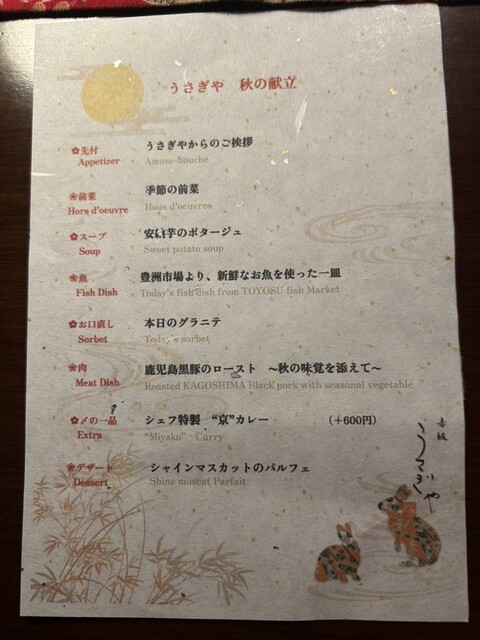 うさぎや 秋の献立
✿先付 うさぎやからのご挨拶
Appetizer Amuse-bouche
❀前菜 季節の前菜
Hors d'oeuvre Hous d'oeuvres
✿スープ 安納芋のポタージュ
Soup Sweet potato soup
❀魚 豊洲市場より、新鮮なお魚を使った一皿
Fish Dish Today's fish dish from TOYOSU fish Market
✿お口直し 本日のグラニテ
Sorbet Today's sorbet
❀肉 鹿児島黒豚のロースト ～秋の味覚を添えて～
Meat Dish Roasted KAGOSHIMA Black pork with seasonal vegetable
✿〆の一品 シェフ特製 “京”カレー (＋600円)
Extra “Miyako” Curry
❀デザート シャインマスカットのパルフェ
Dessert Shine muscat Parfait
赤坂
うさぎや